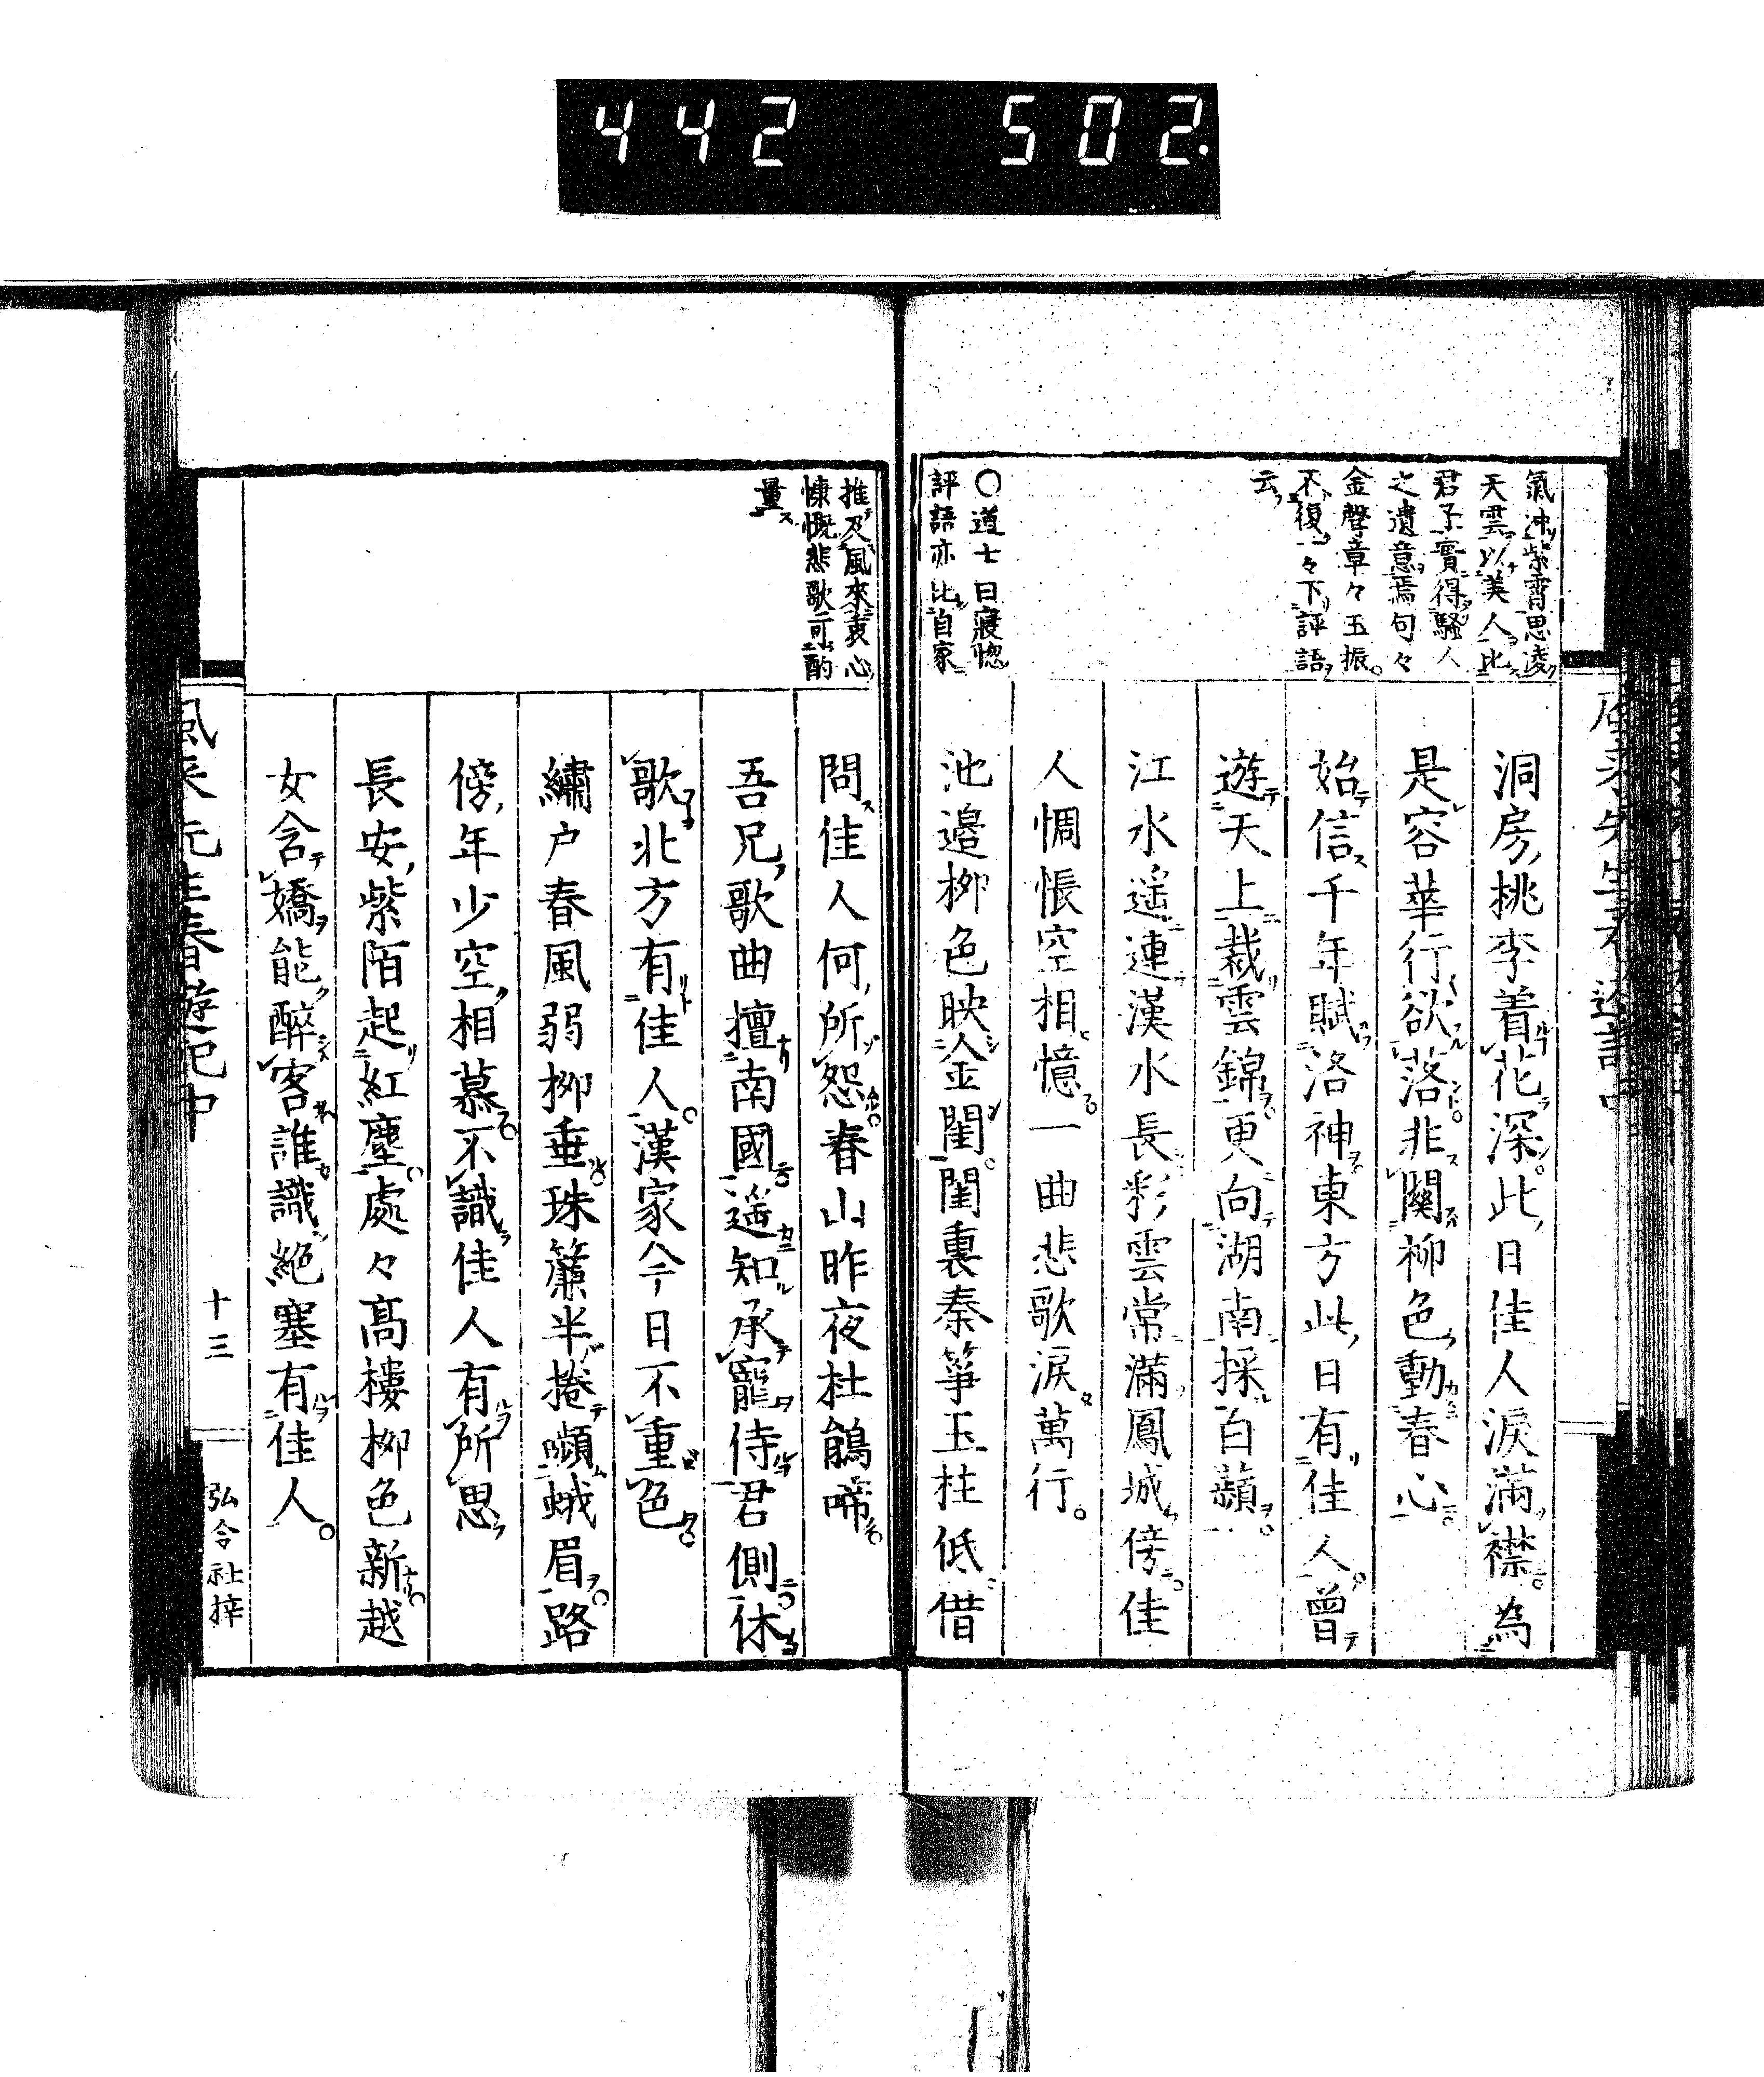 442 502.
氣冲紫霄思凌
天雲以美人比
君子實得騷人
之遺意焉句々
金聲章々玉振
不復一々下評語
云
○道七曰寢惚
評語亦比自家
洞房桃李着花深此日佳人淚滿襟為
是容華行欲落非關柳色動春心
始信千年賦洛神東方此日有佳人曾
遊天上裁雲錦更向湖南採白蘋
江水遥連漢水長彩雲常滿鳳城傍佳
人惆悵空相憶一曲悲歌淚萬行
池邉栁色映金閨閨裏秦箏玉柱低借
推及風來衷心
慷慨悲歌可酌
量
問佳人何所怨春山昨夜杜鵑啼
吾兄歌曲擅南國遥知承寵侍君側休
歌北方有佳人漢家今日不重色
繡户春風弱栁垂珠簾半捲嚬蛾眉路
傍年少空相慕不識佳人有所思
長安紫陌起紅塵處々髙樓栁色新越
女含嬌能醉客誰識絕塞有佳人
風來先生春遊記中
十三
弘令社梓